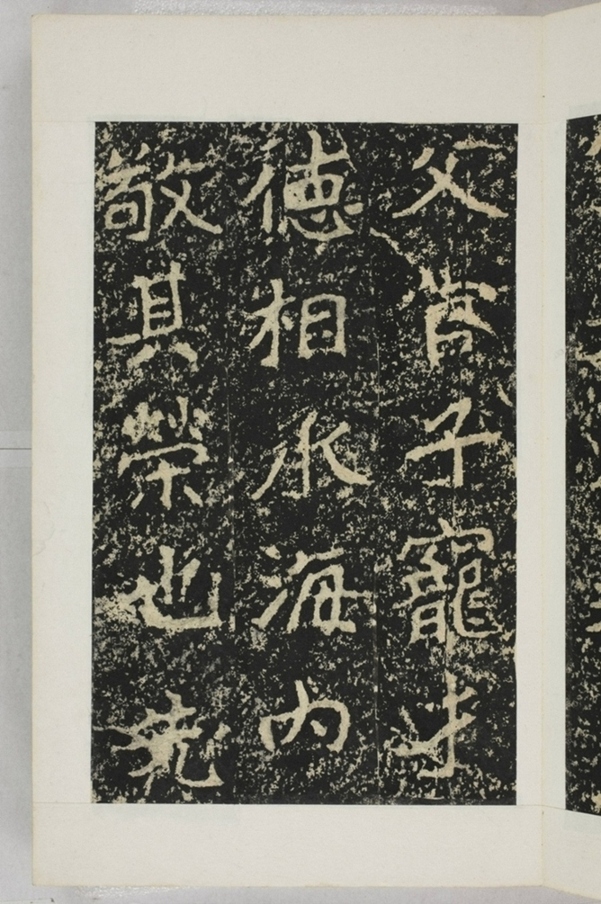 父官子寵才
德相承海內
敬其榮也